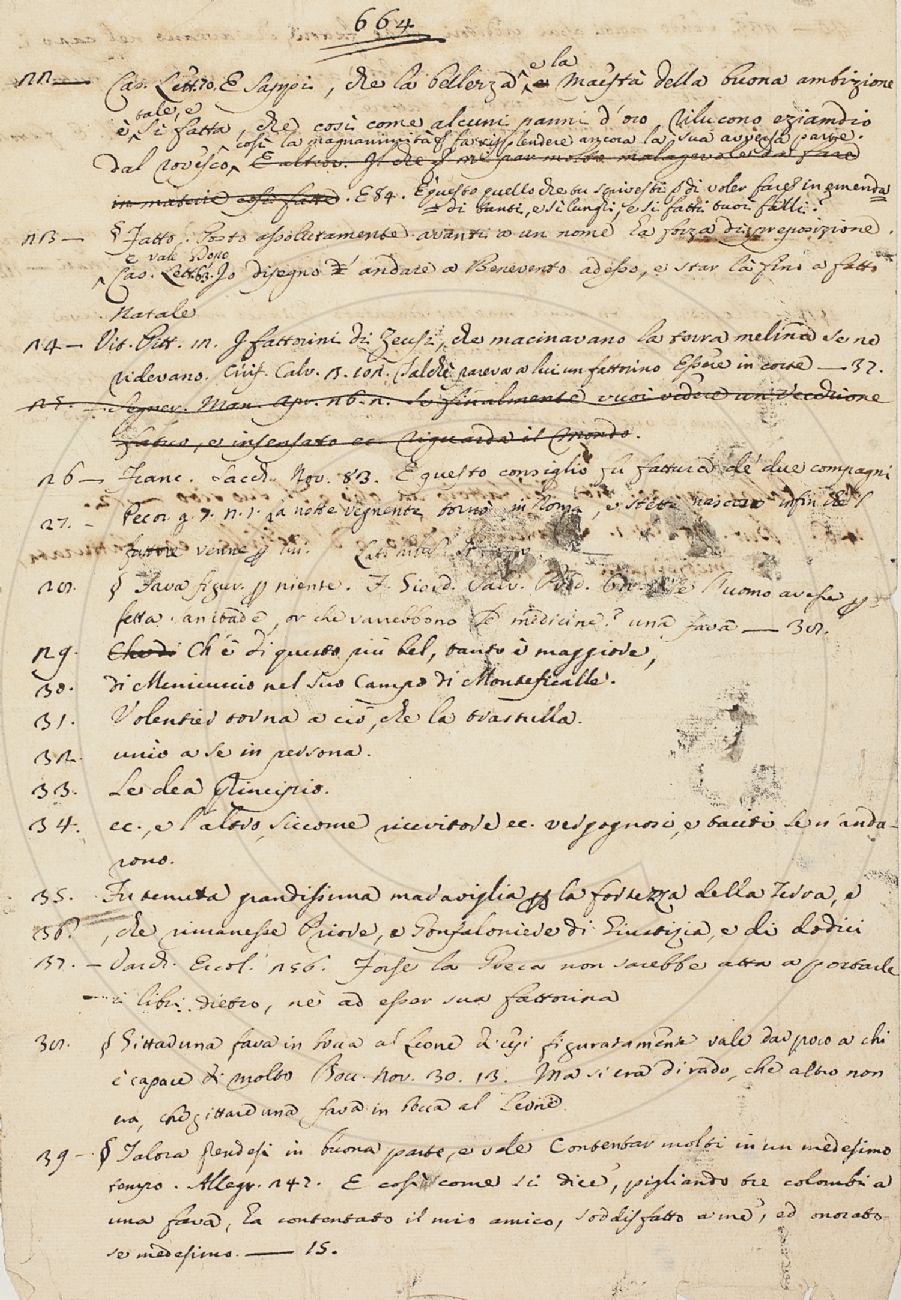 664
22 — Cas. Lett. 70. E sappi, che la bellezza, e la maestà della buona ambizione
è tale, e sì fatta, che così come alcuni panni d'oro rilucono eziandio
dal rovescio, così la magnanimità fa risplendere ancora la sua avversa parte.
in materie così fatte. E 84. È questo quello che tu scrivesti di voler fare in emenda
di tanti, e sì lunghi, e sì fatti tuoi falli?
23 — § Fatto. Posto assolutamente avanti a un nome ha forza di preposizione.
e vale Dopo
Cas. Lett. 63. Io disegno d' andare a Benevento adesso, e star là fino a fatto
Natale
24 — Vit. Pitt. 12. I fattorini di Zeusi, che macinavano la terra melina se ne
ridevano. Criſt. Calv. 13. 102. Salchè pareva a lui un fattorino Essere in corte — 37.
25. — Segner. Man. Apr. 26. 2. Se finalmente vuoi vedere un'Vecchione
fatuo, e insensato ec. riguarda il Mondo.
26 — Franc. Sacch. Nov. 83. E questo consiglio fu fattura de' due compagni
27. — Pecor. g. 7. n. 1. La notte vegnente tornò in Roma, e stette nascoso infin che 'l
fattore venne p lui.
28. § Fava figur. p niente. Salv. se l'uomo avesse
sanitade, or che varrebbono le medicine? una fava — 38.
29. Ch'è di questo più bel, tanto è maggiore,
30. di Menicuccio nel suo Campo di Monteficalle.
31. Volentier torna a ciò, che la trastulla.
32. unìo a se in persona.
33. Le dea principio.
34. ec., e l'altro, siccome ricevitore ec. vergognosi, e taciti se n'anda-
rono.
35. Fu tenuta grandissima maraviglia p la fortezza della Terra, e
36. , che rimanesse Priore, e Gonfaloniere di Giustizia, e di dodici
37. — Varch. Ercol. 256. Forse la Greca non sarebbe atta a portarle
i libri dietro, nè ad esser sua fattorina
38. § Gittar una fava in bocca al Leone figuratamente vale dar poco a chi
è capace di molto Bocc. Nov. 30. 13. Ma sì era di rado, che altro non
era, che gittare una fava in bocca al Leone.
39 — § Talora prendesi in buona parte, e vale Contentar molti in un medesimo
tempo. Allegr. 242. E così come si dice, pigliando tre colombi a
una fava, ha contentato il mio amico, soddisfatto a me, ed onorato
se medesimo. — 15.